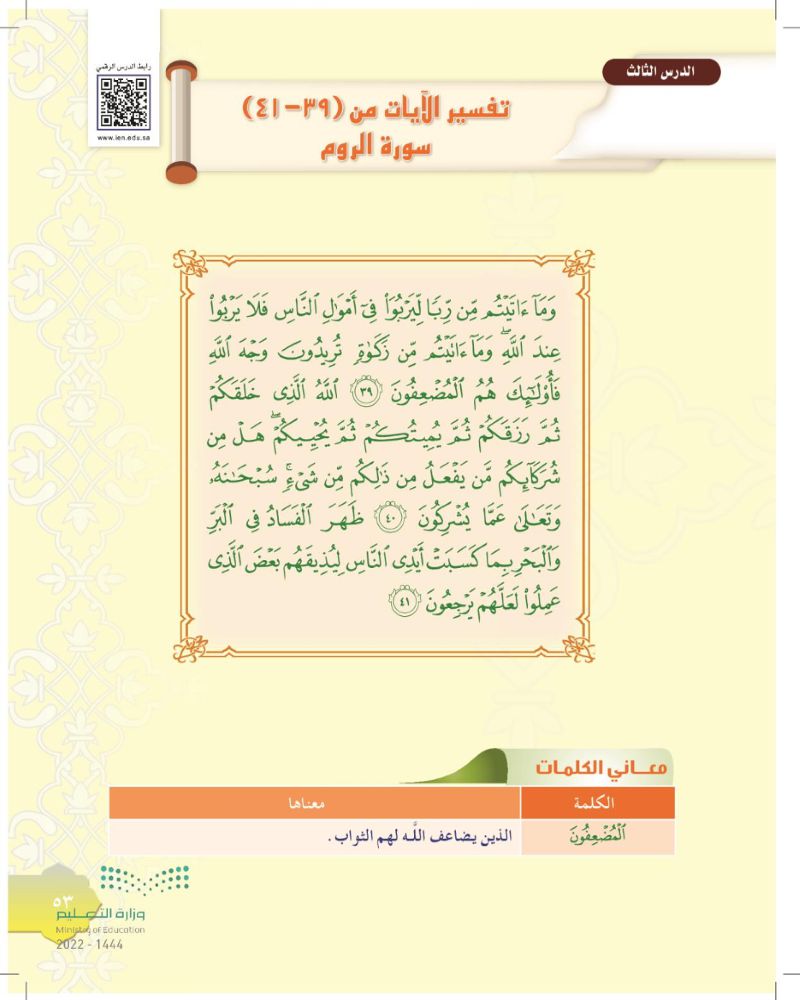 رابط الدرس الرقمي
www.ien.edu.sa
الدرس الثالث
تفسير الآيات من (٣٩-٤١)
سورة الروم
وَمَآ ءَاتَيْتُم مِّن رِّبًا لِّيَرْبُوَا۟ فِىٓ أَمْوَٰلِ ٱلنَّاسِ فَلَا يَرْبُوا۟
عِندَ ٱللَّهِ ۖ وَمَآ ءَاتَيْتُم مِّن زَكَوٰةٍ تُرِيدُونَ وَجْهَ ٱللَّهِ
فَأُو۟لَـٰٓئِكَ هُمُ ٱلْمُضْعِفُونَ ٣٩ ٱللَّهُ ٱلَّذِى خَلَقَكُمْ
ثُمَّ رَزَقَكُمْ ثُمَّ يُمِيتُكُمْ ثُمَّ يُحْيِيكُمْ ۖ هَلْ مِن
شُرَكَآئِكُم مَّن يَفْعَلُ مِن ذَٰلِكُم مِّن شَىْءٍ ۚ سُبْحَـٰنَهُۥ
وَتَعَـٰلَىٰ عَمَّا يُشْرِكُونَ ٤٠ ظَهَرَ ٱلْفَسَادُ فِى ٱلْبَرِّ
وَٱلْبَحْرِ بِمَا كَسَبَتْ أَيْدِى ٱلنَّاسِ لِيُذِيقَهُم بَعْضَ ٱلَّذِى
عَمِلُوا۟ لَعَلَّهُمْ يَرْجِعُونَ ٤١
معـــاني الكلمـات
الكلمة معناها
ٱلْمُضْعِفُونَ الذين يضاعف اللَّـه لهم الثواب .
٥٣
وزارة التعـــليم
Ministry of Education
2022 - 1444